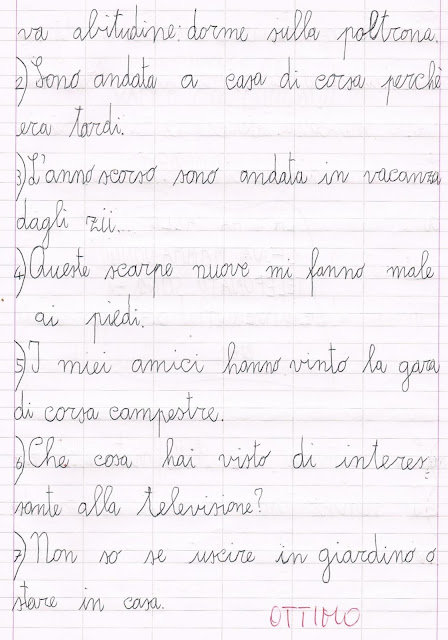 va abitudine: dorme sulla poltrona.
2) Sono andata a casa di corsa perchè
era tardi.
3) L'anno scorso sono andata in vacanza
dagli zii.
4) Queste scarpe nuove mi fanno male
ai piedi.
5) I miei amici hanno vinto la gara
di corsa campestre.
6) Che cosa hai visto di interes=
sante alla televisione?
7) Non so se uscire in giardino o
stare in casa.
OTTIMO